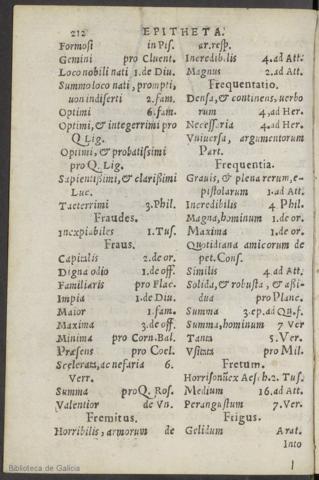 212 EPITHETA.
Formosi in Pis.
Gemini pro Cluent.
Loco nobili nati 1.de Diu.
Summo loco nati, prompti,
non indiserti 2.fam.
Optimi 6.fam.
Optimi, & integerrimi pro
Q.Lig.
Optimi, & probatissimi
pro Q. Lig.
Sapientissimi, & clarissimi
Luc.
Taeterrimi 3.Phil.
Fraudes.
Inexpiabiles 1.Tus.
Fraus.
Capitalis 2.de or.
Digna odio 1.de off.
Familiaris pro Flac.
Impia 1.de Diu.
Maior 1.fam.
Maxima 3.de off.
Minima pro Corn.Bal.
Præsens pro Coel.
Scelerata, ac nefaria 6.
Verr.
Summa pro Q. Ros.
Valentior de Vn.
Fremitus.
Horribilis, armorum de
ar.resp.
Incredibilis 4.ad Att.
Magnus 2.ad Att.
Frequentatio.
Densa, & continens, verbo
rum 4,ad Her.
Necessaria 4.ad Her.
Vniuersa, argumentorum
Part.
Frequentia.
Grauis, & plena rerum, e-
pistolarum 1.ad Att.
Incredibilis 4 Phil.
Magna, hominum 1.de or.
Maxima 1.de or.
Quotidiana amicorum de
pet.Cons.
Similis 4.ad Att.
Solida, & robusta, & aßi-
dua pro Planc.
Summa 3.ep.ad Qu.f.
Summa, hominum 7 Ver
Tanta 5.Ver.
Vsitata pro Mil.
Fretum.
Horrisonũ ex Aesch.2. Tus.
Medium 16.ad Att.
Perangustum 7.Ver.
Frigus.
Gelidum Arat.
Into
Biblioteca de Galicia